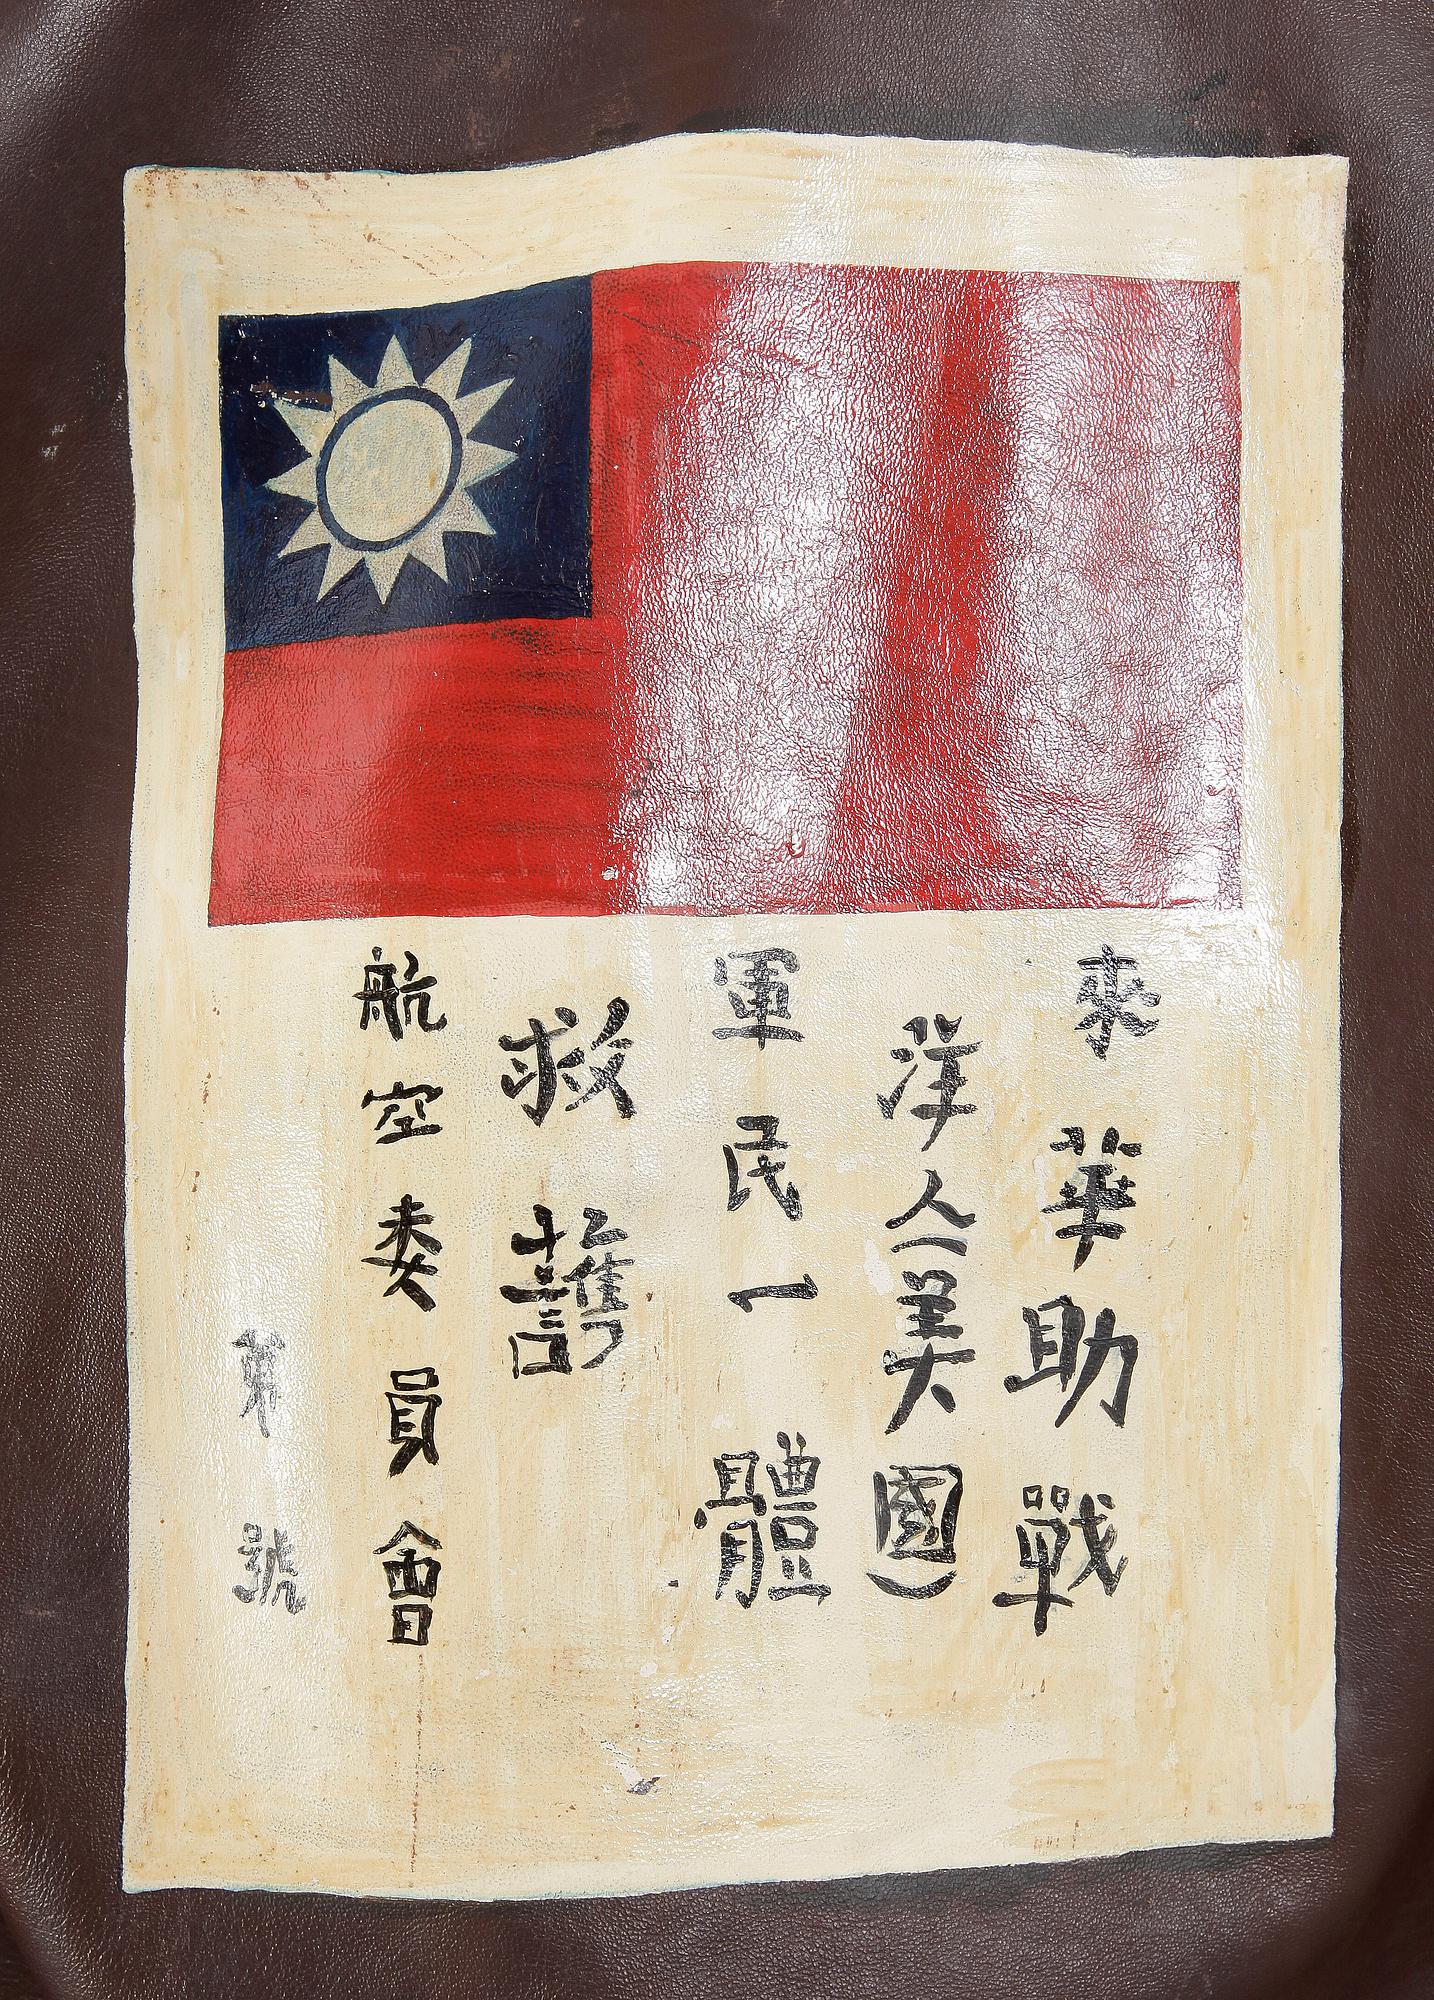 來華助戰
洋人(美國)
軍民一體
救護
航空委員會
第號